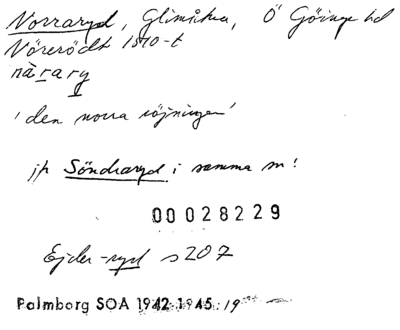 Norraryd, Glimåkra, Ö Göinge hd
Nörerödt 1510-t
nàrary
'den norra röjningen'
jfr Söndraryd i samma sn!
00028229
Ejder -ryd s 207
Palmborg SOA 1942-1945:19